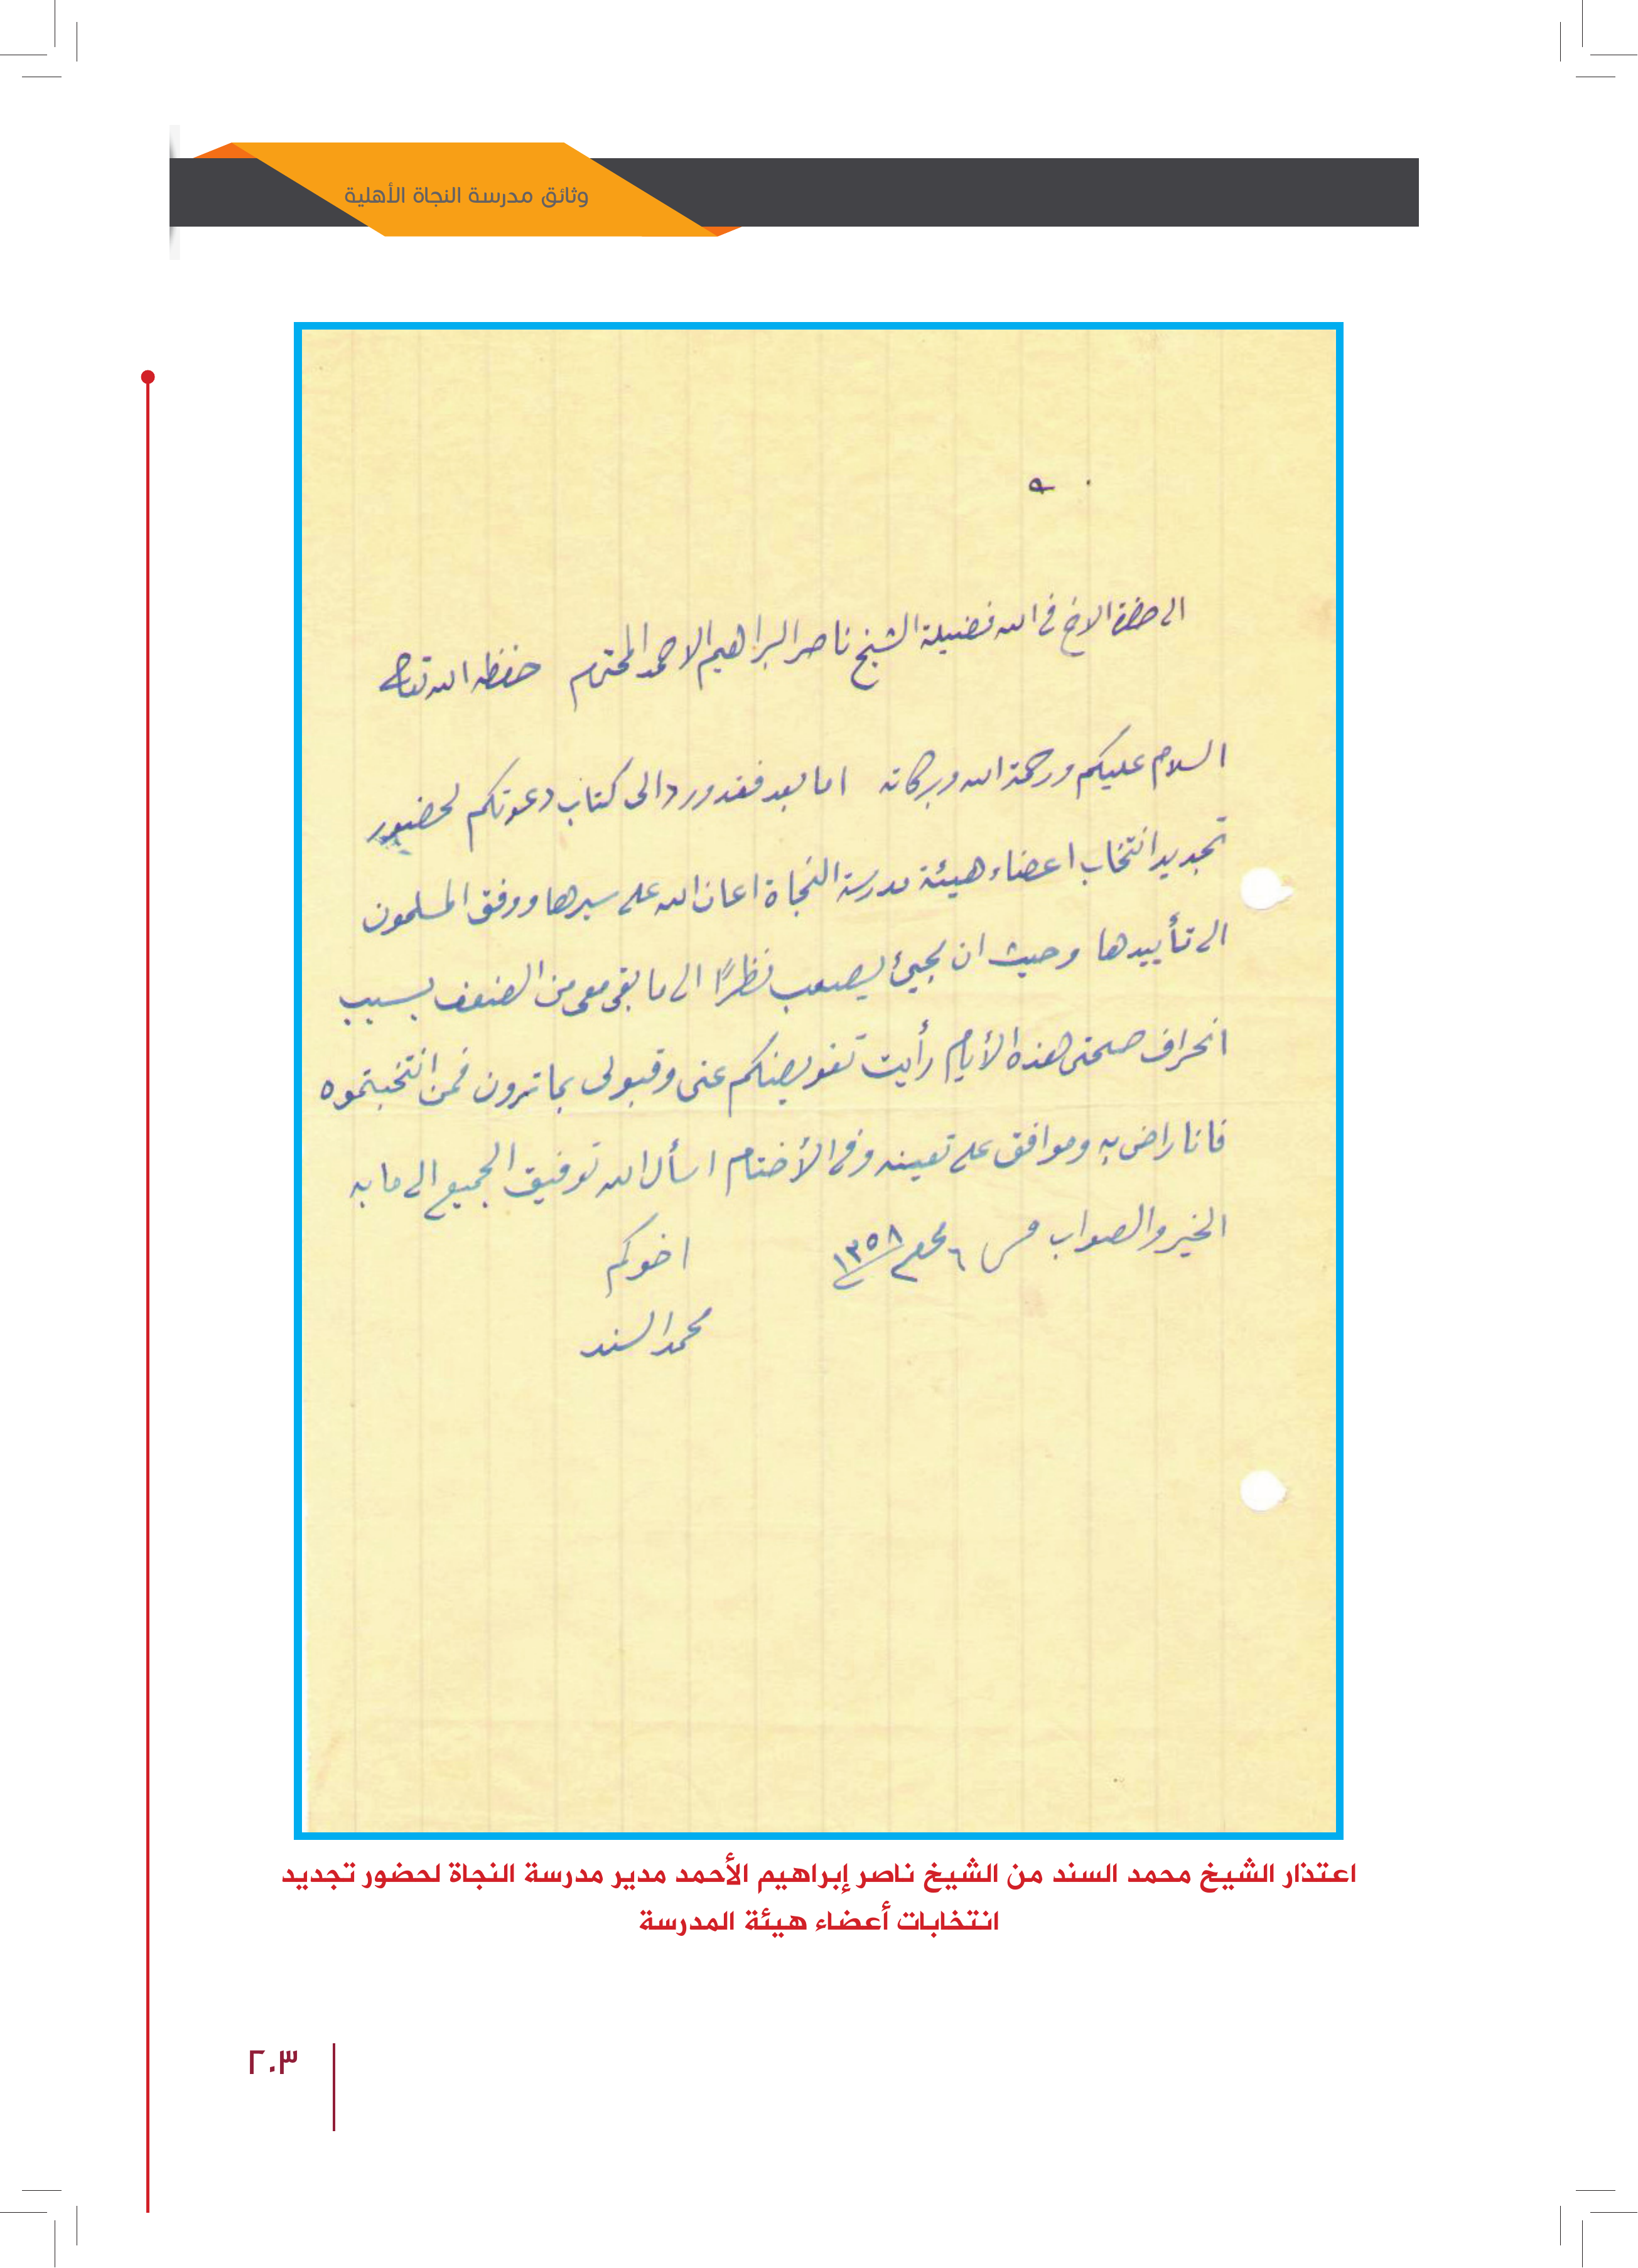 وثائق مدرسة النجاة الأهلية
الى حضرة الاخ في الله فضيلة الشيخ ناصر البراهيم الاحمد المحترم حفظه الله تعالى
السلام عليكم ورحمة الله وبركاته اما بعد فقد ورد الى كتاب دعوتكم لحضور
تجديد انتخاب اعضاء هيئة مدرسة النجاة اعان الله على سيرها ووفق المسلمون
الى تأييدها وحيث ان مجيئ يصعب نظرًا الى ما بقى معى من الضعف بسبب
انحراف صحتى هذه الأيام رأيت تفويضكم عنى وقبولى بما ترون فمن انتخبتموه
فانا راض به وموافق على تعينه وفى الأختام اسأل الله توفيق الجميع الى ما به
الخير والصواب ٦ محرم ١٣٥٨
اخوكم
محمد السند
اعتذار الشيخ محمد السند من الشيخ ناصر إبراهيم الأحمد مدير مدرسة النجاة لحضور تجديد
انتخابات أعضاء هيئة المدرسة
٢٠٣